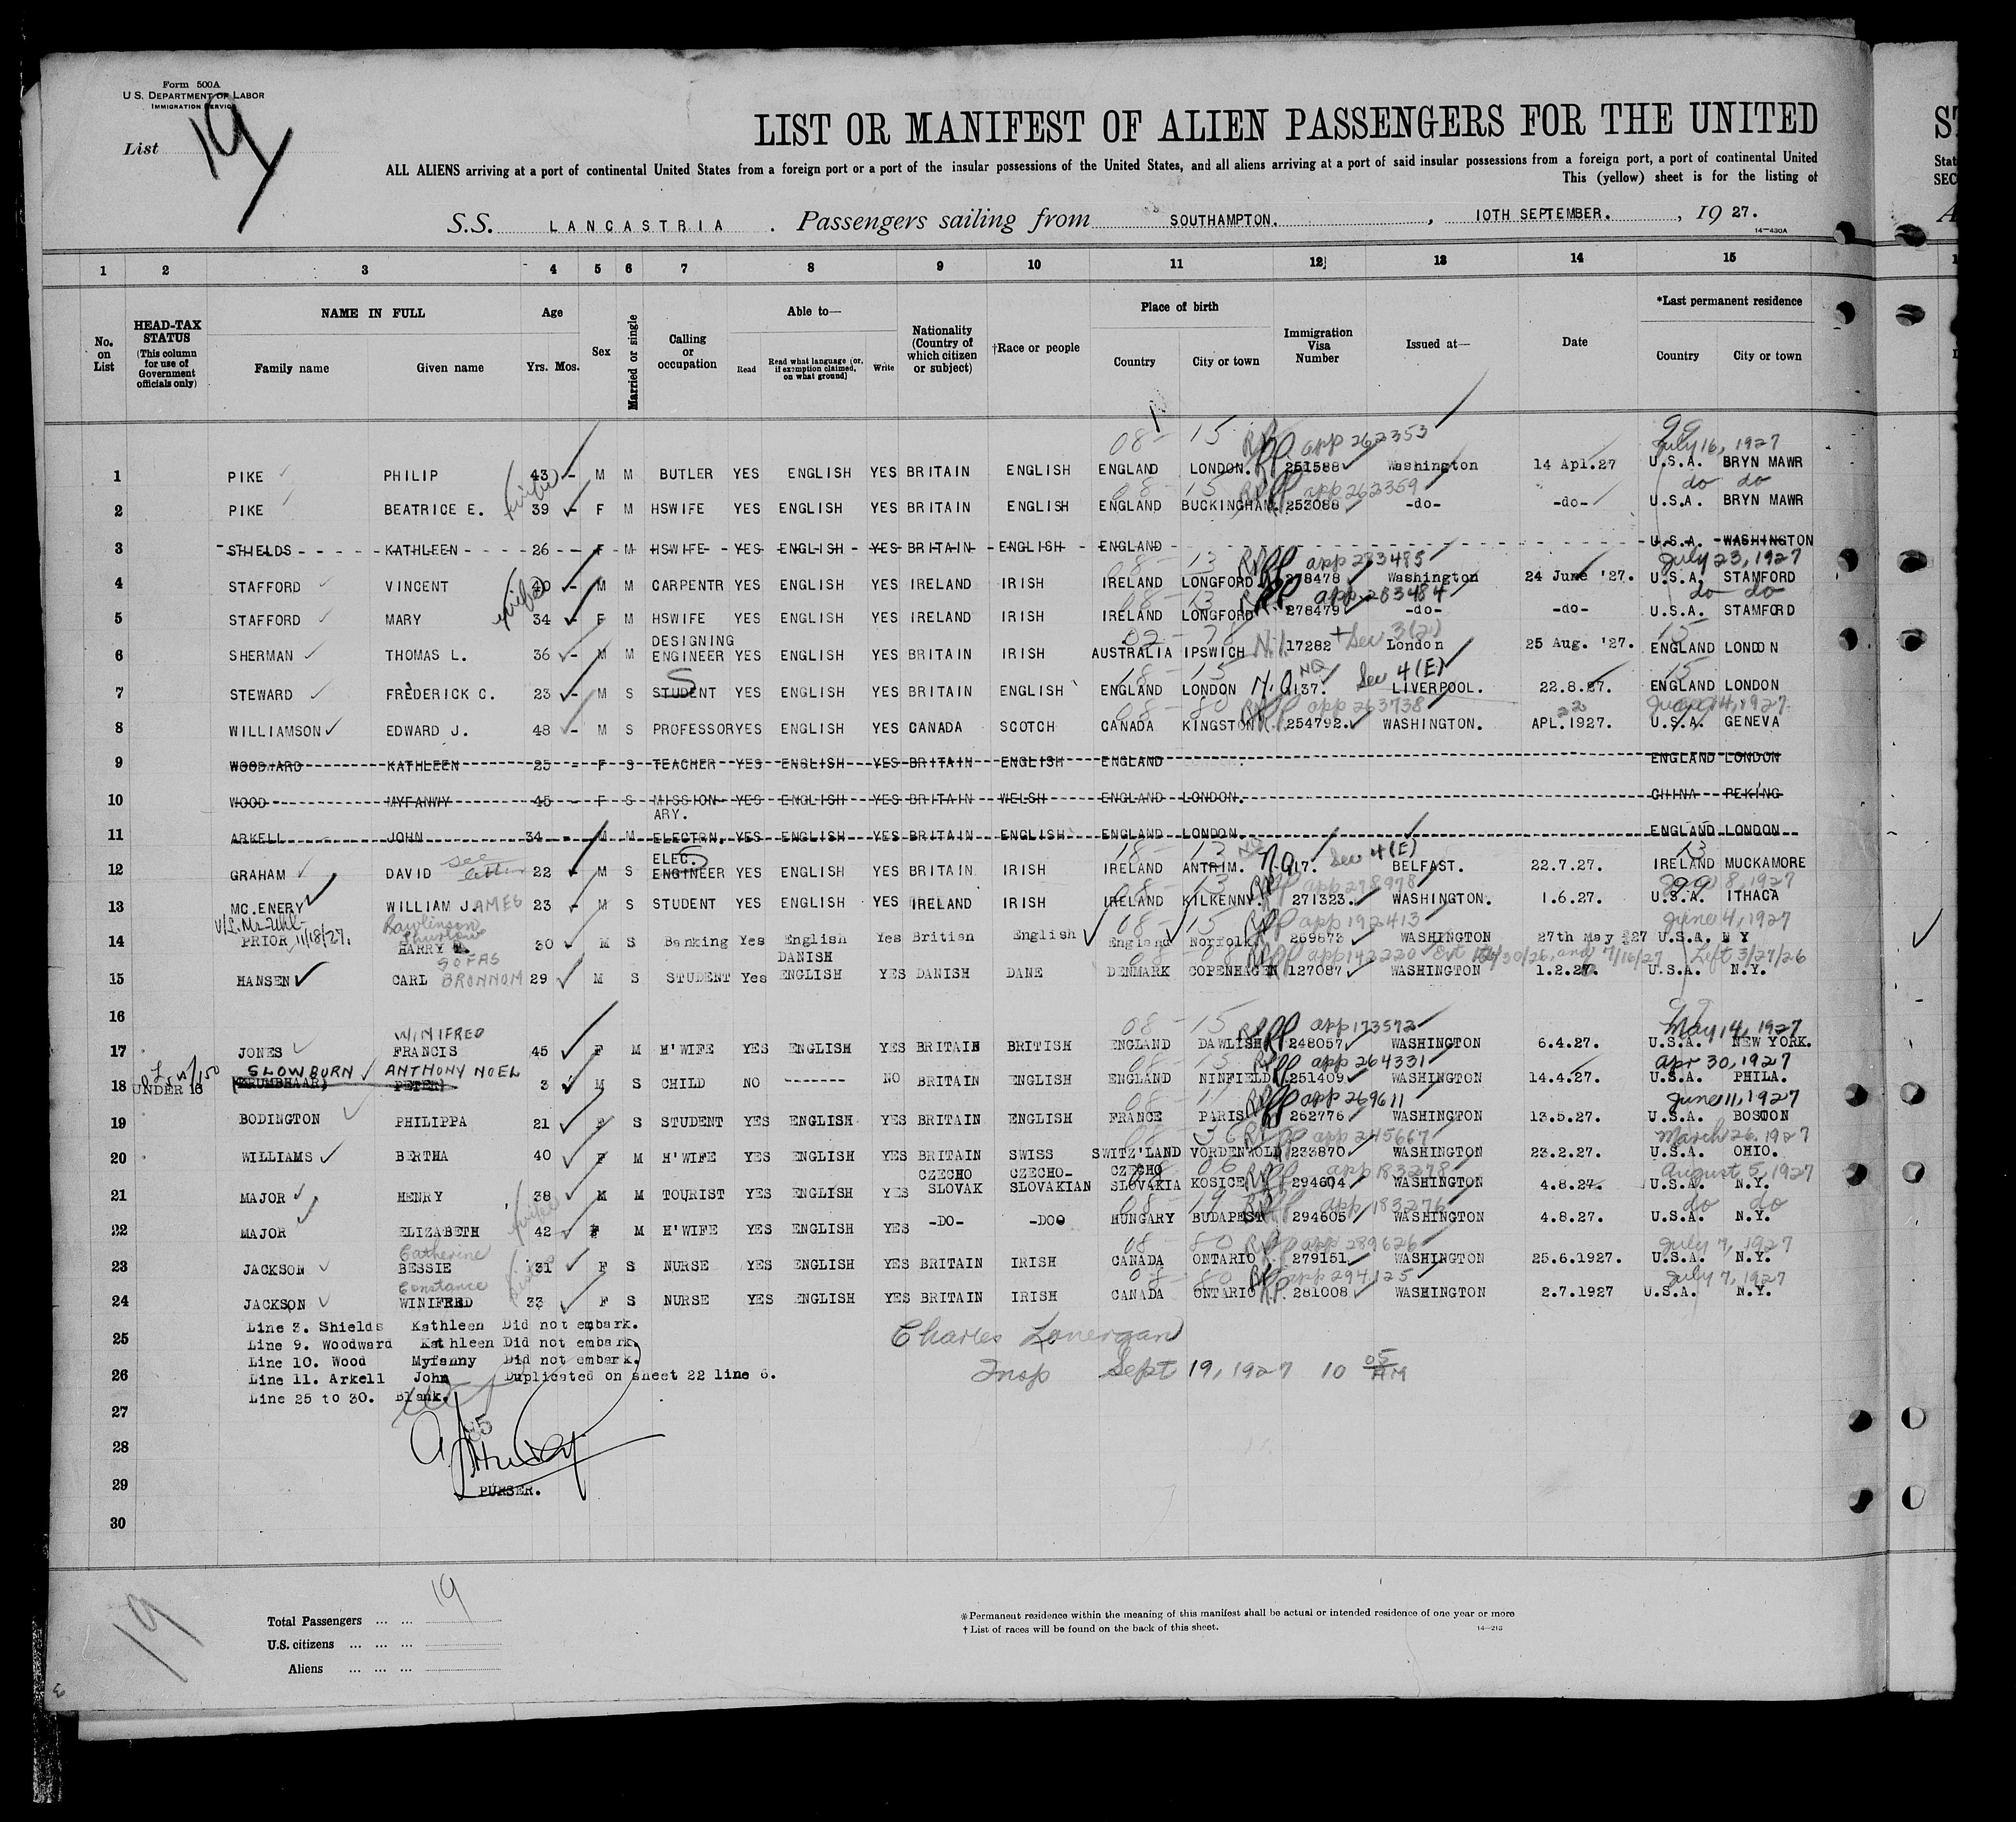 Form 500A
U.S. DEPARTMENT OF LABOR
IMMIGRATION SERVICE
List 19
LIST OR MANIFEST OF ALIEN PASSENGERS FOR THE UNITED
ALL ALIENS arriving at a port of continental United States from a foreign port or a port of the insular possessions of the United States, and all aliens arriving at a port of said insular possessions from a foreign port, a port of continental United
This (yellow) sheet is for the listing of
S.S. LANCASTRIA . Passengers sailing from SOUTHAMPTON. , 10TH SEPTEMBER. , 19 27.
14—430A
1 2 3 4 5 6 7 8 9 10 11 12 13 14 15
No. on List
HEAD-TAX STATUS (This column for use of Government officials only)
NAME IN FULL
Family name Given name
Age
Yrs. Mos.
Sex
Married or single
Calling or occupation
Able to—
Read Read what language (or, if exemption claimed, on what ground) Write
Nationality (Country of which citizen or subject)
†Race or people
Place of birth
Country City or town
Immigration Visa Number
Issued at—
Date
*Last permanent residence
Country City or town
08 - 15 app 262353 99 July 16, 1927
1 PIKE PHILIP 43 - M M BUTLER YES ENGLISH YES BRITAIN ENGLISH ENGLAND LONDON. 251588 Washington 14 Apl.27 U.S.A. BRYN MAWR
08 - 15 app 262359 do do
2 PIKE BEATRICE E. 39 - F M HSWIFE YES ENGLISH YES BRITAIN ENGLISH ENGLAND BUCKINGHAM. 253088 -do- -do- U.S.A. BRYN MAWR
3 SHIELDS KATHLEEN 26 - F M HSWIFE YES ENGLISH YES BRITAIN ENGLISH ENGLAND U.S.A. WASHINGTON
08 - 13 app 283485 July 23, 1927
4 STAFFORD VINCENT 40 M M CARPENTR YES ENGLISH YES IRELAND IRISH IRELAND LONGFORD 278478 Washington 24 June '27. U.S.A. STAMFORD
08 - 13 app 283484 do do
5 STAFFORD MARY 34 - F M HSWIFE YES ENGLISH YES IRELAND IRISH IRELAND LONGFORD 278479 -do- -do- U.S.A. STAMFORD
02 - 78 Sec 3(2) 15
6 SHERMAN THOMAS L. 36 - M M DESIGNING ENGINEER YES ENGLISH YES BRITAIN IRISH AUSTRALIA IPSWICH N.I. 17282 London 25 Aug. '27. ENGLAND LONDON
18 - 15 NQ Sec 4(E) 15
7 STEWARD FREDERICK C. 23 - M S STUDENT YES ENGLISH YES BRITAIN ENGLISH ENGLAND LONDON N.Q. 137. LIVERPOOL. 22.8.27. ENGLAND LONDON
08 - 80 app 263738 22
8 WILLIAMSON EDWARD J. 48 - M S PROFESSOR YES ENGLISH YES CANADA SCOTCH CANADA KINGSTON 254792. WASHINGTON. APL.1927. U.S.A. GENEVA
9 WOODWARD KATHLEEN 25 - F S TEACHER YES ENGLISH YES BRITAIN ENGLISH ENGLAND ENGLAND LONDON
10 WOOD MYFANWY 45 - F S MISSIONARY. YES ENGLISH YES BRITAIN WELSH ENGLAND LONDON. CHINA PEKING
11 ARKELL JOHN 34 - M M ELECTRN. YES ENGLISH YES BRITAIN ENGLISH ENGLAND LONDON. ENGLAND LONDON
see letter 18 - 13 NQ Sec 4(E) 13
12 GRAHAM DAVID 22 M S ELEC. ENGINEER YES ENGLISH YES BRITAIN IRISH IRELAND ANTRIM. N.Q. 17. BELFAST. 22.7.27. IRELAND MUCKAMORE
08 - 13 app 278978 8, 1927
13 MC.ENERY WILLIAM JAMES 23 - M S STUDENT YES ENGLISH YES IRELAND IRISH IRELAND KILKENNY. 271323. WASHINGTON. 1.6.27. U.S.A. ITHACA
11/18/27. Rawlinson 08 - 15 app 192413 June 4, 1927
14 PRIOR HARRY 30 M S Banking Yes English Yes Britian English England Norfolk 269673 WASHINGTON 27th May 27 U.S.A. N Y
SOFAS DANISH 08 - 08 app 142220 Ext 10/30/26, and 7/16/27 Left 3/27/26
15 HANSEN CARL BRONNOM 29 M S STUDENT Yes ENGLISH YES DANISH DANE DENMARK COPENHAGEN 127087 WASHINGTON 1.2.27. U.S.A. N.Y.
16
WINIFRED 08 - 15 app 173572 99 May 14, 1927
17 JONES FRANCIS 45 F M H'WIFE YES ENGLISH YES BRITAIN BRITISH ENGLAND DAWLISH 248057 WASHINGTON 6.4.27. U.S.A. NEW YORK.
SLOWBURN ANTHONY NOEL 08 - 15 app 264331 Apr 30, 1927
18 UNDER 16 (KRUMBHAAR) PETER 3 M S CHILD NO ------- NO BRITAIN ENGLISH ENGLAND NINFIELD 251409 WASHINGTON 14.4.27. U.S.A. PHILA.
08 - 11 app 269611 June 11, 1927
19 BODINGTON PHILIPPA 21 F S STUDENT YES ENGLISH YES BRITAIN ENGLISH FRANCE PARIS 262776 WASHINGTON 13.5.27. U.S.A. BOSTON
08 - 36 app 245667 March 26. 1927
20 WILLIAMS BERTHA 40 F M H'WIFE YES ENGLISH YES BRITAIN SWISS SWITZ'LAND VORDENWOLD 233870 WASHINGTON 23.2.27. U.S.A. OHIO.
06 app 183278 August 5, 1927
21 MAJOR HENRY 38 M M TOURIST YES ENGLISH YES CZECHO SLOVAK CZECHO-SLOVAKIAN CZECHO SLOVAKIA KOSICE 294604 WASHINGTON 4.8.27. U.S.A. N.Y.
08 - 19 app 183276 do do
22 MAJOR ELIZABETH 42 F M H'WIFE YES ENGLISH YES -DO- -DO- HUNGARY BUDAPEST 294605 WASHINGTON 4.8.27. U.S.A. N.Y.
Catherine 08 - 80 app 289626 July 7, 1927
23 JACKSON BESSIE 31 F S NURSE YES ENGLISH YES BRITAIN IRISH CANADA ONTARIO 279151 WASHINGTON 25.6.1927. U.S.A. N.Y.
Constance 08 - 80 app 294125 July 7, 1927
24 JACKSON WINIFRED 33 F S NURSE YES ENGLISH YES BRITAIN IRISH CANADA ONTARIO 281008 WASHINGTON 2.7.1927 U.S.A. N.Y.
Line 3. Shields Kathleen Did not embark.
25 Line 9. Woodward Kathleen Did not embark.
Line 10. Wood Myfanny Did not embark.
26 Line 11. Arkell John Duplicated on sheet 22 line 6.
Line 25 to 30. Blank.
Charles Lonergan
Insp Sept 19, 1927 10 05 AM
27
28
29 PURSER.
30
19
Total Passengers ... ... 19
U.S. citizens ... ... ...
Aliens ... ... ...
*Permanent residence within the meaning of this manifest shall be actual or intended residence of one year or more
† List of races will be found on the back of this sheet.
14—213